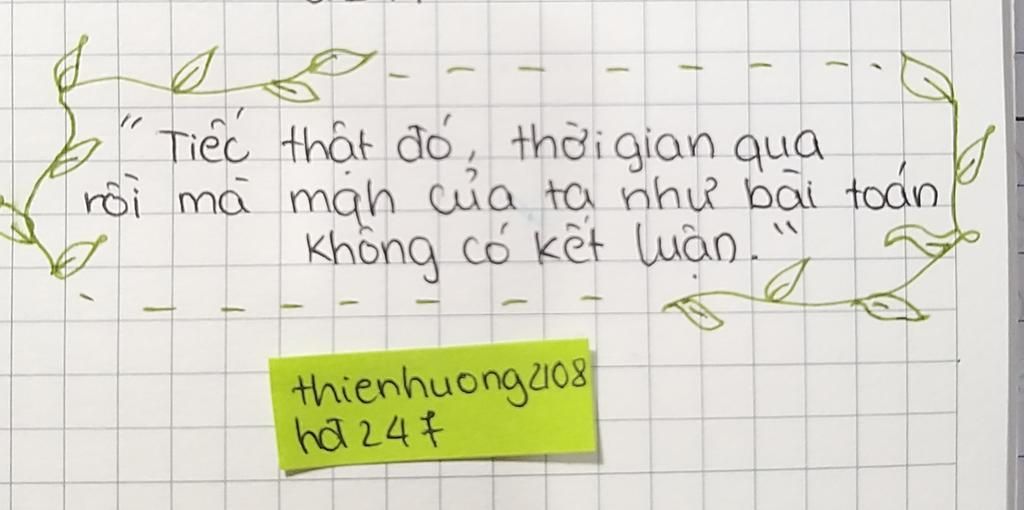 “Tiếc thật đó, thời gian qua
rồi mà mạh của ta như bài toán
không có kết luận.“
thienhuong2108
hđ247